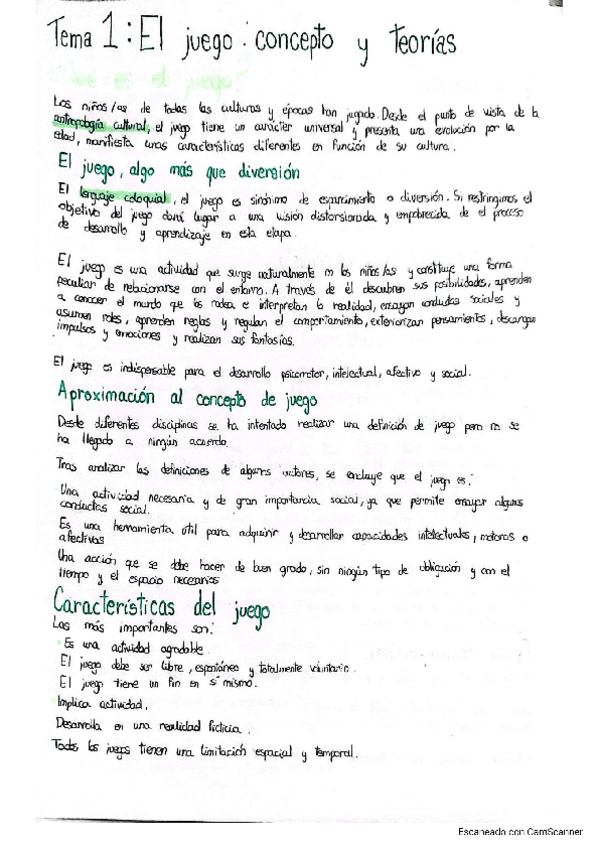 Tema 1: El juego: concepto y teorías
Los niños/as de todas las culturas y épocas han jugado. Desde el punto de vista de la
antropología cultural, el juego tiene un carácter universal y presenta una evolución por la
edad, manifiesta unas características diferentes en función de su cultura.
El juego, algo más que diversión
El lenguaje coloquial, el juego es sinónimo de esparcimiento o diversión. Si restringimos el
objetivo del juego dará lugar a una visión distorsionada y empobrecida de el proceso
de desarrollo y aprendizaje en esta etapa.
El juego es una actividad que surge naturalmente en los niños/as y constituye una forma
peculiar de relacionarse con el entorno. A través de él descubren sus posibilidades, aprenden
a conocer el mundo que los rodea e interpretan la realidad, ensayan conductas sociales y
asumen roles, aprenden reglas y regulan el comportamiento, exteriorizan pensamientos, descargan
impulsos y emociones y realizan sus fantasías.
El juego es indispensable para el desarrollo psicomotor, intelectual, afectivo y social.
Aproximación al concepto de juego
Desde diferentes disciplinas se ha intentado realizar una definición de juego pero no se
ha llegado a ningún acuerdo.
Tras analizar las definiciones de algunos autores, se concluye que el juego es:
Una actividad necesaria y de gran importancia social, ya que permite ensayar algunas
conductas social.
Es una herramienta útil para adquirir y desarrollar capacidades intelectuales, motoras o
afectivas
Una acción que se debe hacer de buen grado, sin ningún tipo de obligación y con el
tiempo y el espacio necesarios
Características del juego
Las más importantes son:
Es una actividad agradable.
El juego debe ser libre, espontáneo y totalmente voluntario.
El juego tiene un fin en sí mismo.
Implica actividad.
Desarrolla en una realidad ficticia.
Todos los juegos tienen una limitación espacial y temporal.
Escaneado con CamScanner